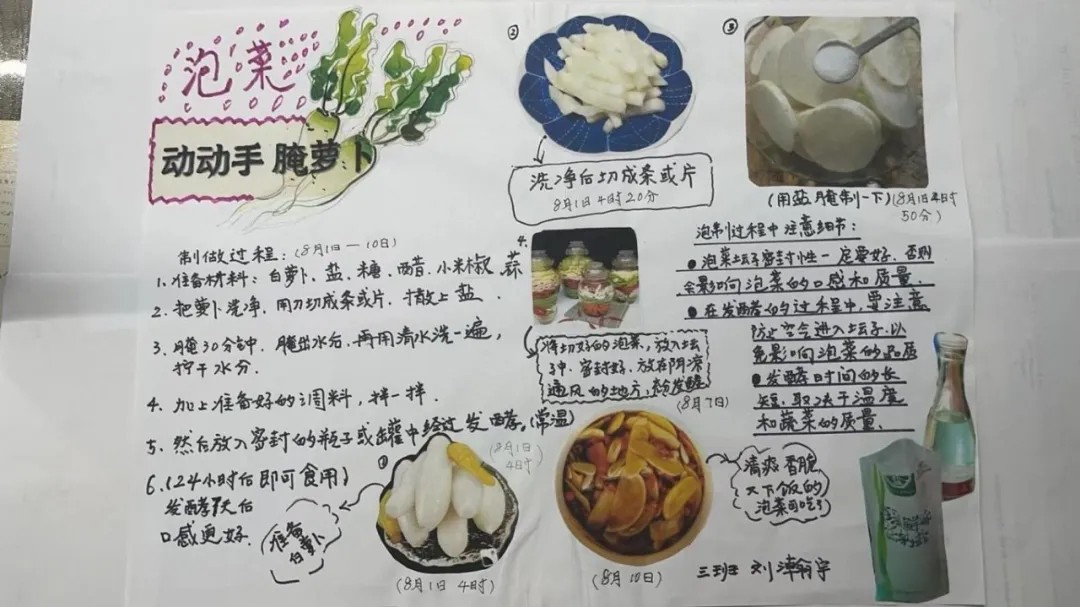 泡菜
动动手 腌萝卜
制做过程：(8月1日—10日)
1、准备材料：白萝卜、盐、糖、醋、小米椒、蒜
2、把萝卜洗净，用刀切成条或片，撒上盐．
3、腌30分钟，腌出水后，再用清水洗一遍，
拧干水分．
4、加上准备好的调料，拌一拌．
5、然后放入密封的瓶子或罐中经过发酵。(常温)
6、(24小时后即可食用)
发酵7天后
口感更好．
①
(8月1日
4时)
准备
白萝卜
(8月1日 4时)
②
洗净后切成条或片
8月1日4时20分
③
(用盐腌制一下)(8月1日4时
50分)
4.
将切好的泡菜，放入坛
子中，密封好，放在阴凉
通风的地方，发酵
(8月7日)
(8月10日)
清爽香脆
又下饭的
泡菜可吃了
泡制过程中注意细节：
●泡菜坛子密封性一定要好，否则
会影响泡菜的口感和质量．
●在发酵的过程中，要注意
防止空气进入坛子，以
免影响泡菜的品质
●发酵时间的长
短，取决于温度
和蔬菜的质量．
三班 刘 宇